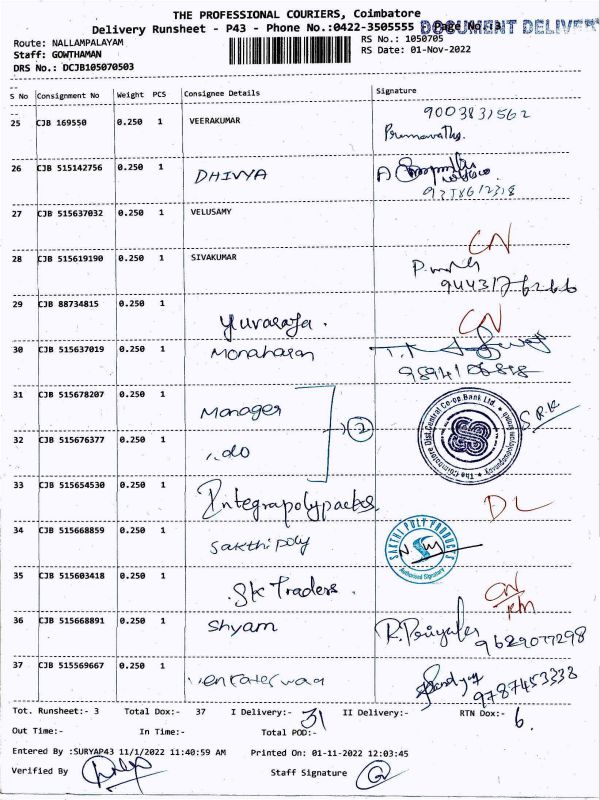 THE PROFESSIONAL COURIERS, Coimbatore
Delivery Runsheet - P43 - Phone No.:0422-3505555 Page No.:3
DOCUMENT DELIVER
Route: NALLAMPALAYAM
RS No.: 1050705
Staff: GOWTHAMAN
RS Date: 01-Nov-2022
DRS No.: DCJB105070503
S No Consignment No Weight PCS Consignee Details Signature
25 CJB 169550 0.250 1 VEERAKUMAR 9003831562
26 CJB 515142756 0.250 1 DHIVYA
27 CJB 515637032 0.250 1 VELUSAMY CN
28 CJB 515619190 0.250 1 SIVAKUMAR
29 CJB 88734815 0.250 1 Yuvaraja. CN
30 CJB 515637019 0.250 1 Monaharan
31 CJB 515678207 0.250 1 Manager
The Coimbatore Dist. Central Co-op Bank Ltd. S.R.K
32 CJB 515676377 0.250 1 ,,do 2
33 CJB 515654530 0.250 1 Integrapolypacks DL
34 CJB 515668859 0.250 1 Sakthi poly
SAKTHI PULP PRODUCTS
Authorised Signatory
35 CJB 515603418 0.250 1 SK Traders. CN
36 CJB 515668891 0.250 1 Shyam 9629077298
37 CJB 515569667 0.250 1 9787453338
Tot. Runsheet:- 3 Total Dox:- 37 I Delivery:- 31 II Delivery:- RTN Dox:- 6.
Out Time:- In Time:- Total POD:-
Entered By :SURYAP43 11/1/2022 11:40:59 AM Printed On: 01-11-2022 12:03:45
Verified By Staff Signature